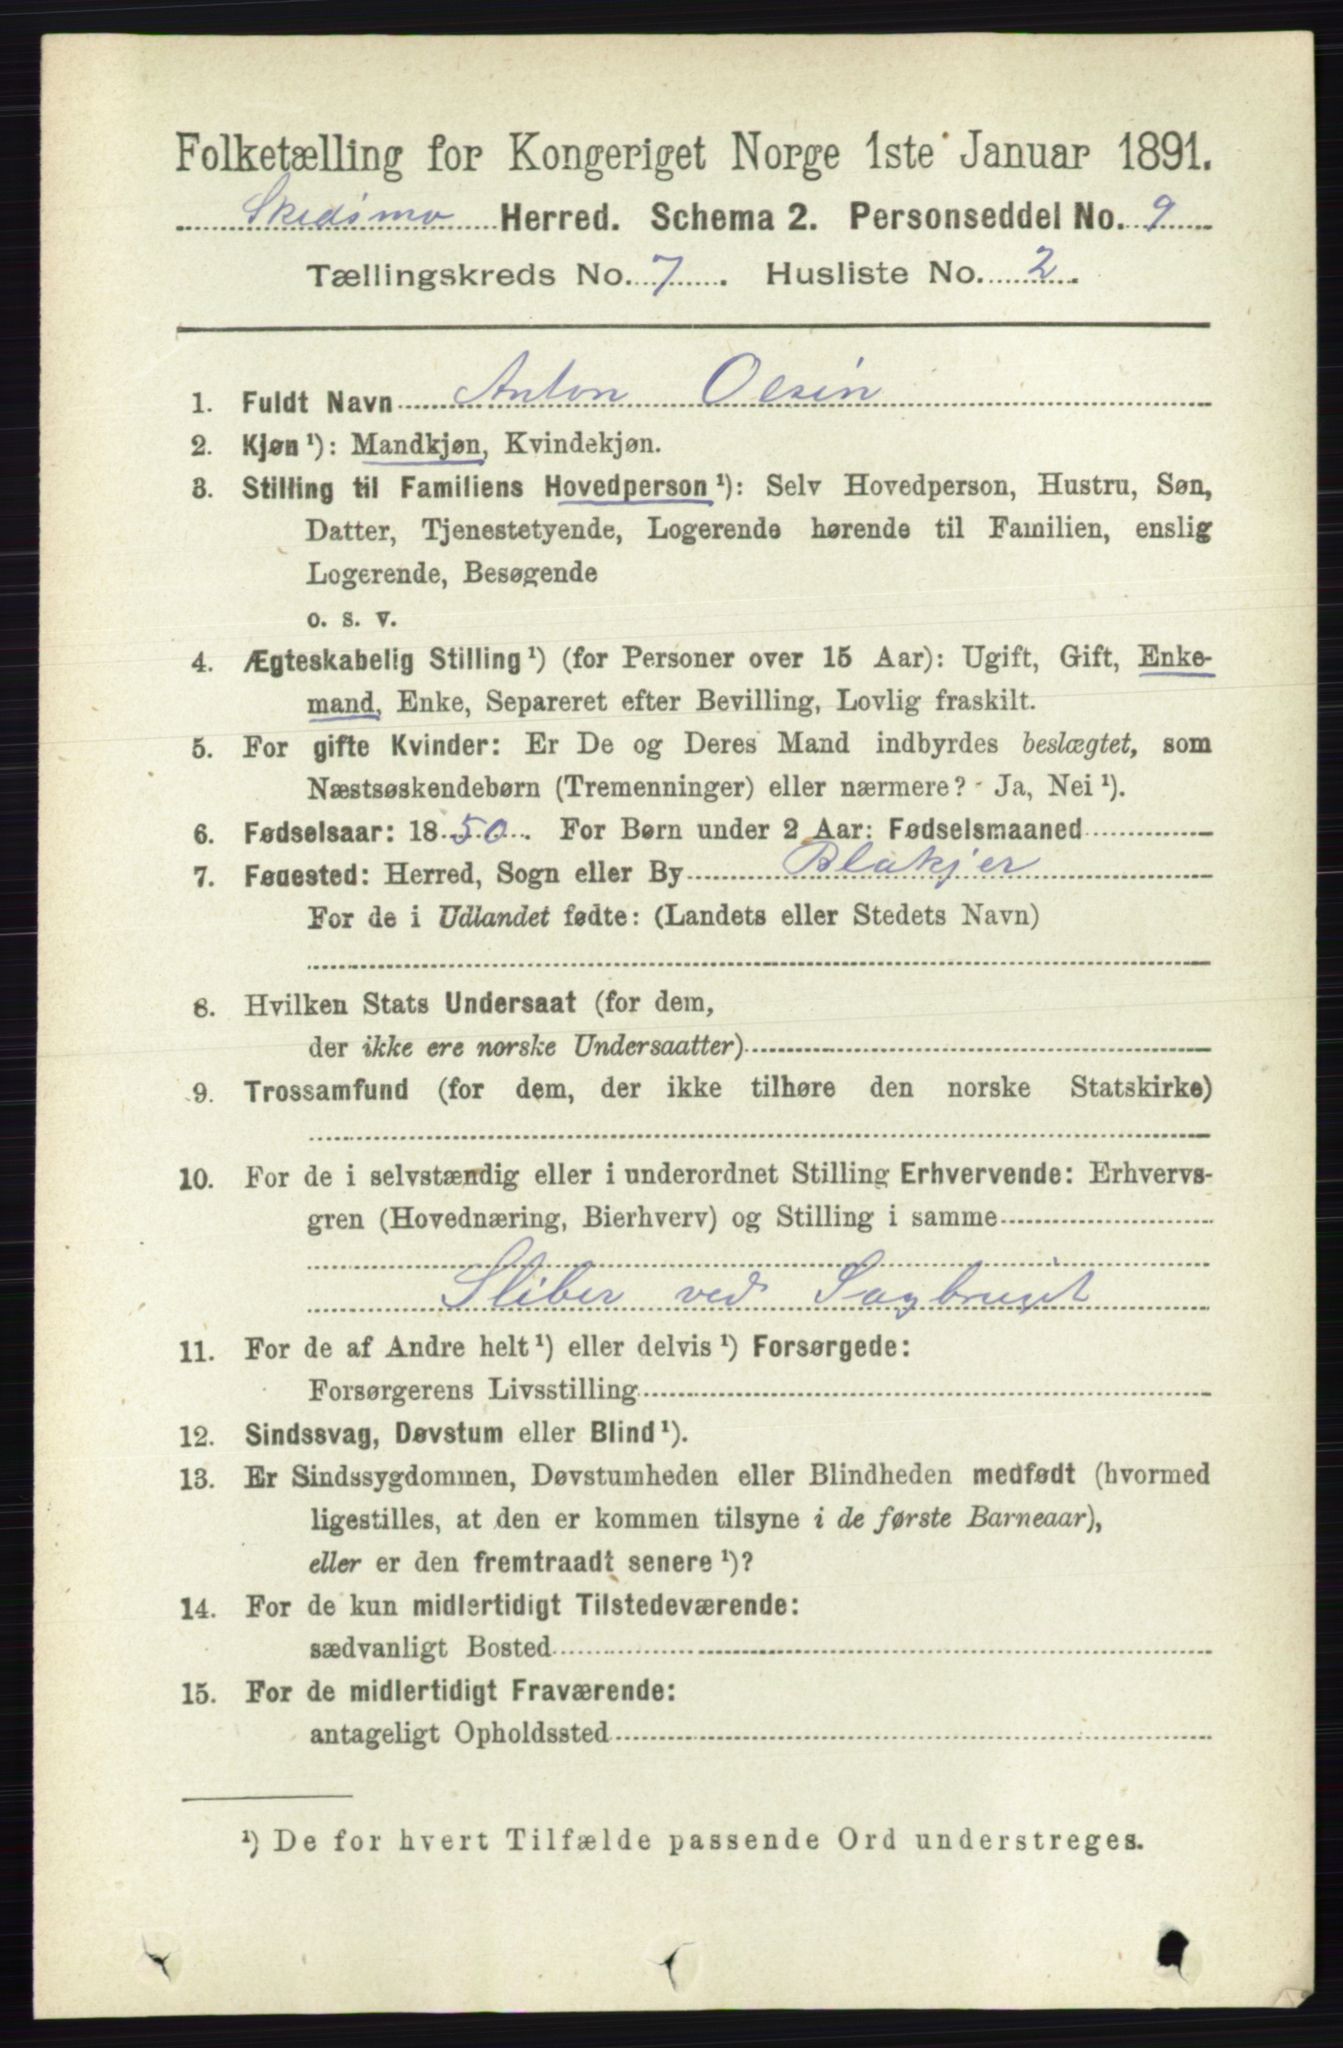 Folketælling for Kongeriget Norge 1ste Januar 1891.
Skedsmo Herred. Schema 2. Personseddel No. 9
Tællingskreds No. 7. Husliste No. 2.
1. Fuldt Navn Anton Olsen
2. Kjøn¹): Mandkjøn, Kvindekjøn.
3. Stilling til Familiens Hovedperson¹): Selv Hovedperson, Hustru, Søn,
Datter, Tjenestetyende, Logerende hørende til Familien, enslig
Logerende, Besøgende
o. s. v.
4. Ægteskabelig Stilling¹) (for Personer over 15 Aar): Ugift, Gift, Enke-
mand, Enke, Separeret efter Bevilling, Lovlig fraskilt.
5. For gifte Kvinder: Er De og Deres Mand indbyrdes beslægtet, som
Næstsøskendebørn (Tremenninger) eller nærmere? Ja, Nei¹).
6. Fødselsaar: 1850. For Børn under 2 Aar: Fødselsmaaned
7. Fødested: Herred, Sogn eller By Blakjer
For de i Udlandet fødte: (Landets eller Stedets Navn)
8. Hvilken Stats Undersaat (for dem,
der ikke ere norske Undersaatter)
9. Trossamfund (for dem, der ikke tilhøre den norske Statskirke)
10. For de i selvstændig eller i underordnet Stilling Erhvervende: Erhvervs-
gren (Hovednæring, Bierhverv) og Stilling i samme
Sliber ved Sagbruget
11. For de af Andre helt¹) eller delvis¹) Forsørgede:
Forsørgerens Livsstilling
12. Sindssvag, Døvstum eller Blind¹).
13. Er Sindssygdommen, Døvstumheden eller Blindheden medfødt (hvormed
ligestilles, at den er kommen tilsyne i de første Barneaar),
eller er den fremtraadt senere¹)?
14. For de kun midlertidigt Tilstedeværende:
sædvanligt Bosted
15. For de midlertidigt Fraværende:
antageligt Opholdssted
¹) De for hvert Tilfælde passende Ord understreges.